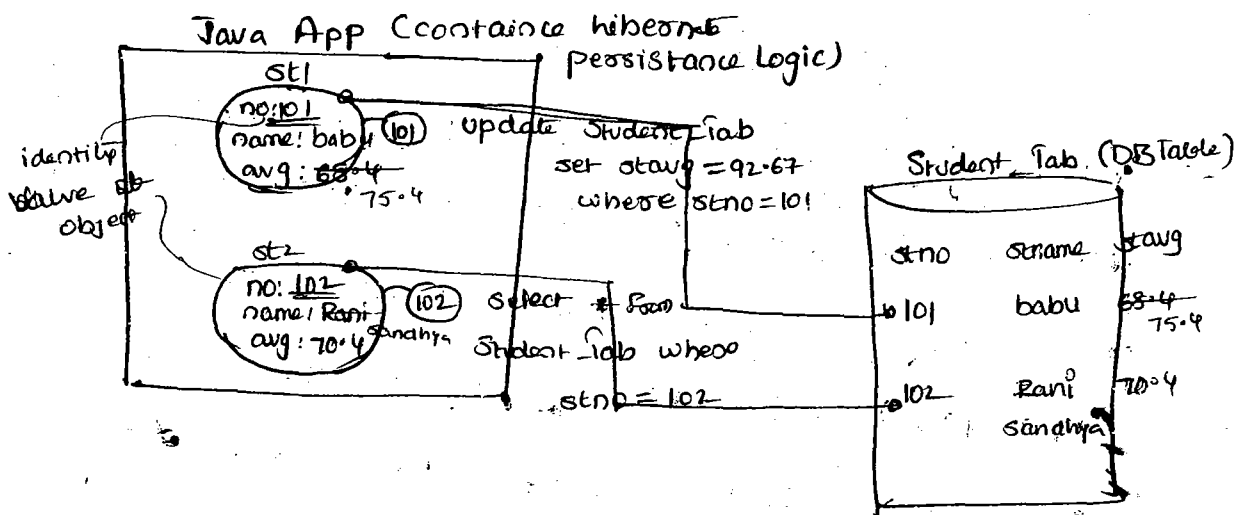 Java App (containce hibernet
persistance Logic)
st1
no:101
name: babu
avg: 68.4
75.4
101
identity
value of
object
update Student_Tab
set stavg = 92.67
where stno = 101
st2
no: 102
name: Rani
sandhya
avg: 70.4
102
select * from
Student_Tab where
stno = 102
Student_Tab (DB Table)
stno stname stavg
101 babu 68.4
75.4
102 Rani 70.4
sandhya